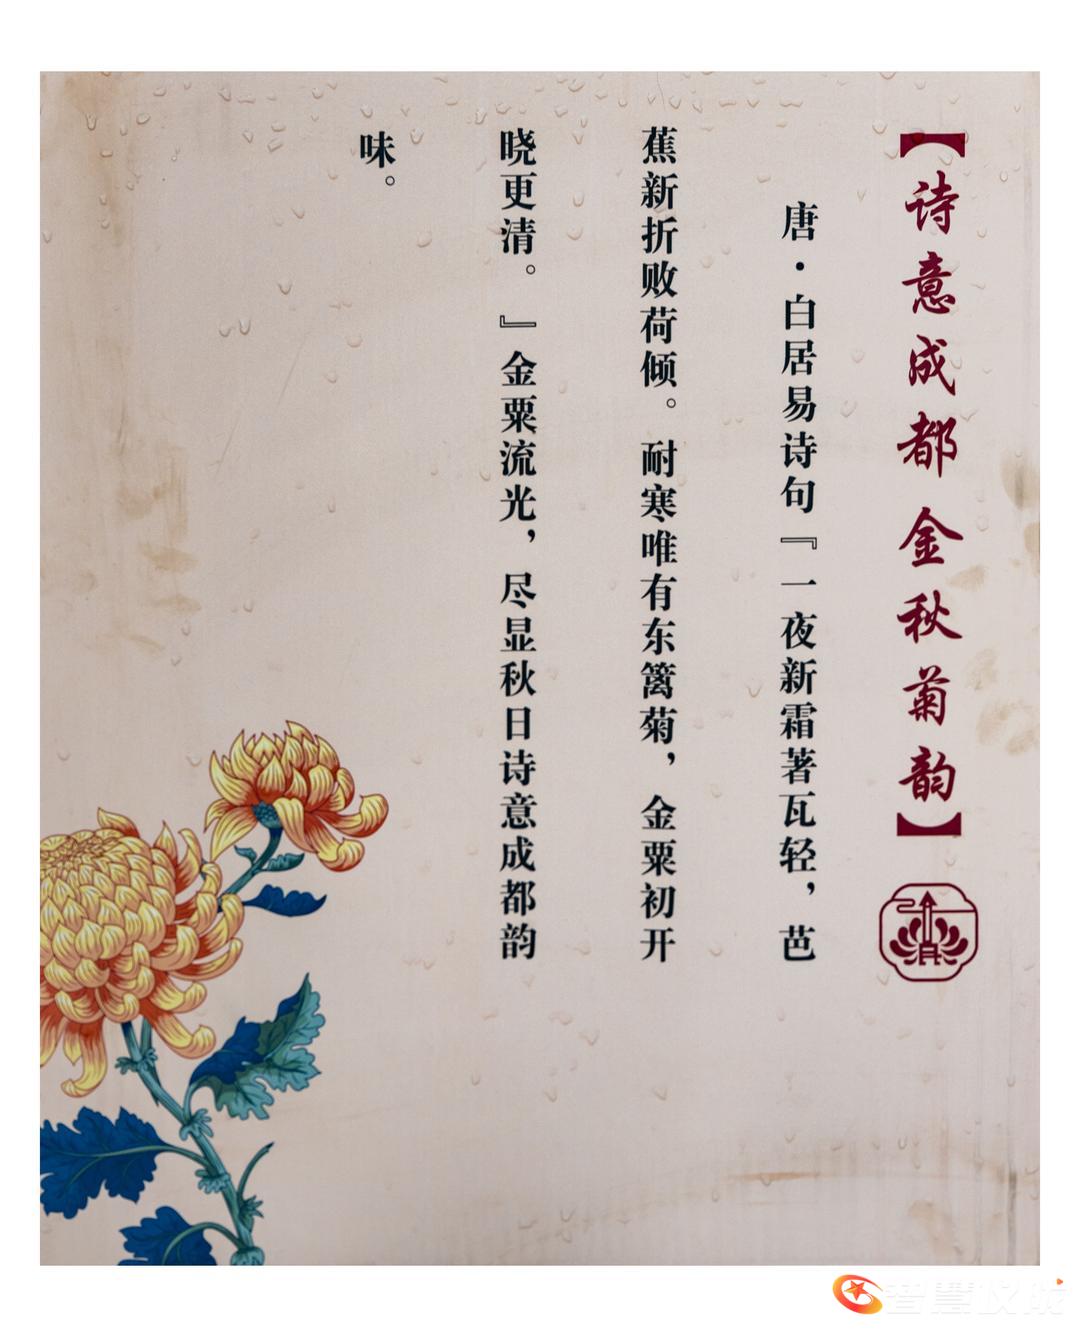 【诗意成都金秋菊韵】
唐·白居易诗句『一夜新霜著瓦轻，芭
蕉新折败荷倾。耐寒唯有东篱菊，金粟初开
晓更清。』金粟流光，尽显秋日诗意成都韵
味。
智慧仪陇